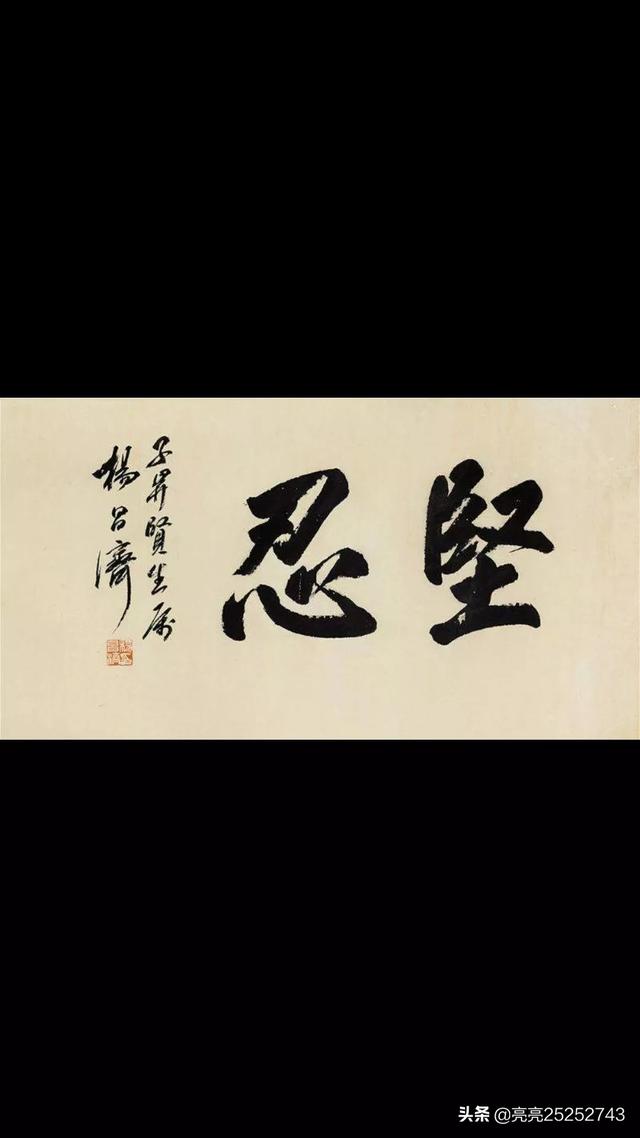 堅忍
子昇賢生屬
楊昌濟
头条 @亮亮25252743